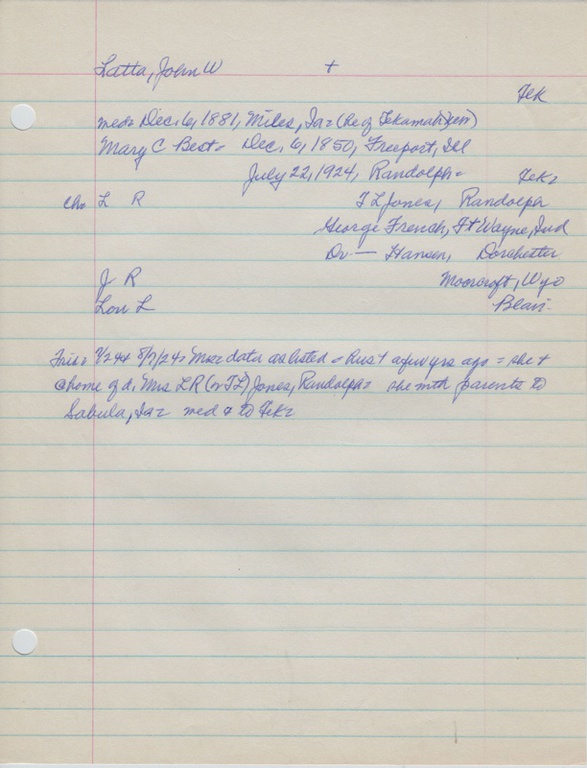 Latta, John W +
Tek
med= Dec. 6, 1881, Miles, Ia= (He of Tekamah)
Mary C Best= Dec. 6, 1850, Freeport, Ill
July 22, 1924, Randolph= Tek=
Ch= L R T L Jones, Randolph
George French, Ft Wayne, Ind
Dr — Hansen, Dorchester
J R Moorcroft, Wyo
Lon L Blair
7/24 & 8/7/24= data as listed = Hus + a few yrs ago = she +
@ home of d. Mrs L R (or T L) Jones, Randolph= she mth parents to
Sabula, Ia= med & to Tek=